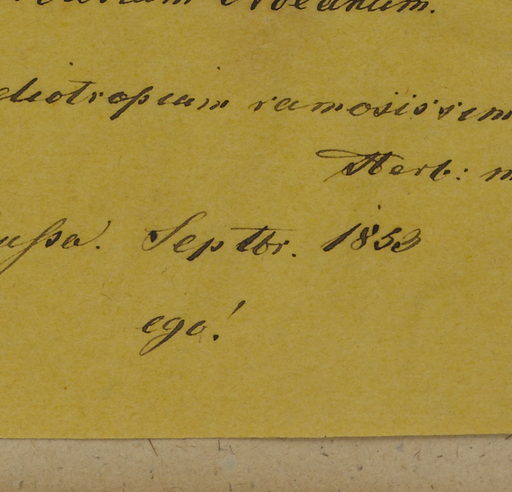 Noeanum.
eliotropium ramosissim
Herb: m
ussa. Septbr. 1853
ego!